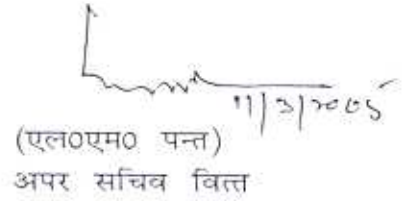 11/3/2005
(एल०एम० पन्त)
अपर सचिव वित्त